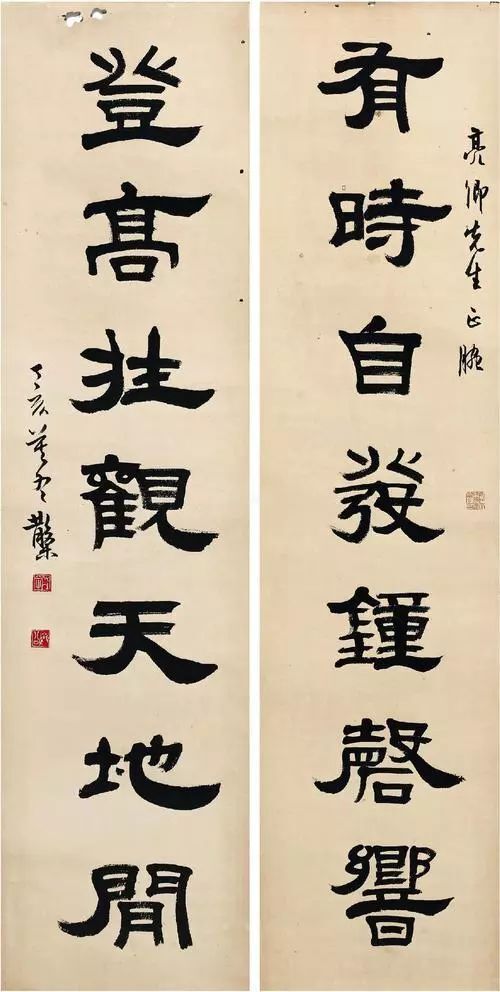 亮卿先生正腕
有時自發鐘磬響
登高壯觀天地閒
丁亥莫冬